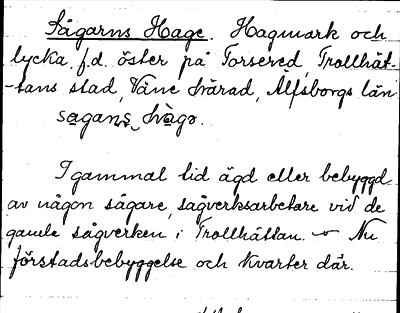 Sågarns Hage. Hagmark och
lycka f.d. öster på Torsered, Trollhät-
-tans stad, Väne härad, Älfsborgs län
sagans, hago.
I gammal tid ägd eller bebyggd
av någon sågare, sågverksarbetare vid de
gamle sågverken i Trollhättan. – Nu
förstadsbebyggelse och kvarter där.